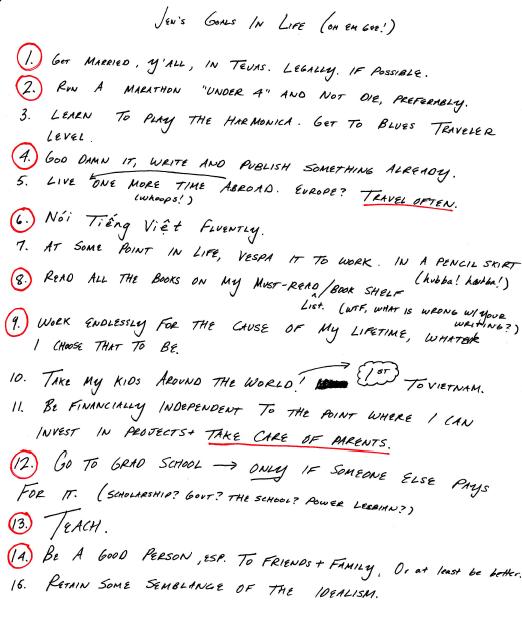 JEN'S GOALS IN LIFE (OH EM GEE!)
1. GET MARRIED, Y'ALL, IN TEXAS. LEGALLY. IF POSSIBLE.
2. RUN A MARATHON "UNDER 4" AND NOT DIE, PREFERABLY.
3. LEARN TO PLAY THE HARMONICA. GET TO BLUES TRAVELER
LEVEL.
4. GOD DAMN IT, WRITE AND PUBLISH SOMETHING ALREADY.
5. LIVE ONE MORE TIME ABROAD. EUROPE? TRAVEL OFTEN.
(WHOOPS!)
6. Nói Tiếng Việt FLUENTLY.
7. AT SOME POINT IN LIFE, VESPA IT TO WORK. IN A PENCIL SKIRT
(hubba! hubba!)
8. READ ALL THE BOOKS ON MY MUST-READ / BOOK SHELF
List. (WTF, WHAT IS WRONG W/ YOUR
WRITING?)
9. WORK ENDLESSLY FOR THE CAUSE OF MY LIFETIME, WHATEVER
I CHOOSE THAT TO BE.
10. TAKE MY KIDS AROUND THE WORLD! 1ST TO VIETNAM.
11. BE FINANCIALLY INDEPENDENT TO THE POINT WHERE I CAN
INVEST IN PROJECTS + TAKE CARE OF PARENTS.
12. GO TO GRAD SCHOOL → ONLY IF SOMEONE ELSE PAYS
FOR IT. (SCHOLARSHIP? GOVT? THE SCHOOL? POWER LESBIAN?)
13. TEACH.
14. BE A GOOD PERSON, ESP. TO FRIENDS + FAMILY. Or at least be better.
16. RETAIN SOME SEMBLANCE OF THE IDEALISM.